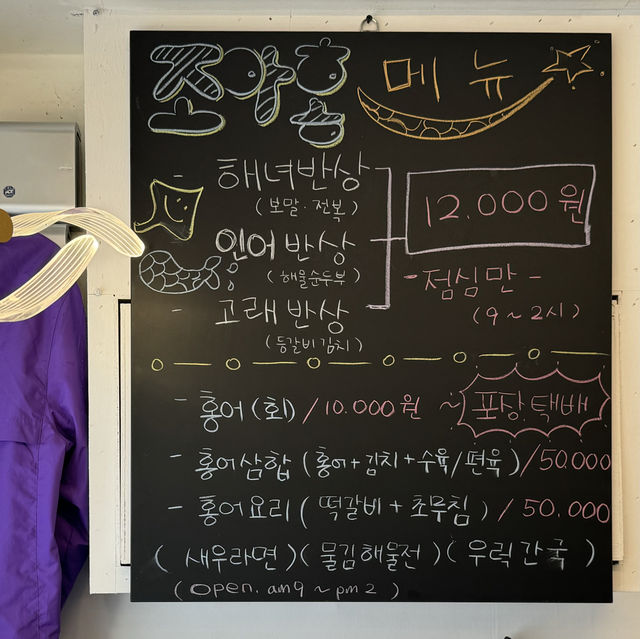 조아홉 메뉴
- 해녀반상
(보말·전복)
12.000원
인어반상
(해물순두부)
- 점심만 -
- 고래반상
(9~2시)
(등갈비김치)
- 홍어(회) /10.000원 ~ 포장택배
- 홍어삼합 (홍어+김치+수육/편육) /50.000
- 홍어요리 (떡갈비+초무침) / 50.000
(새우라면) (물김해물전) (우럭간국)
(open. am9 ~ pm2)